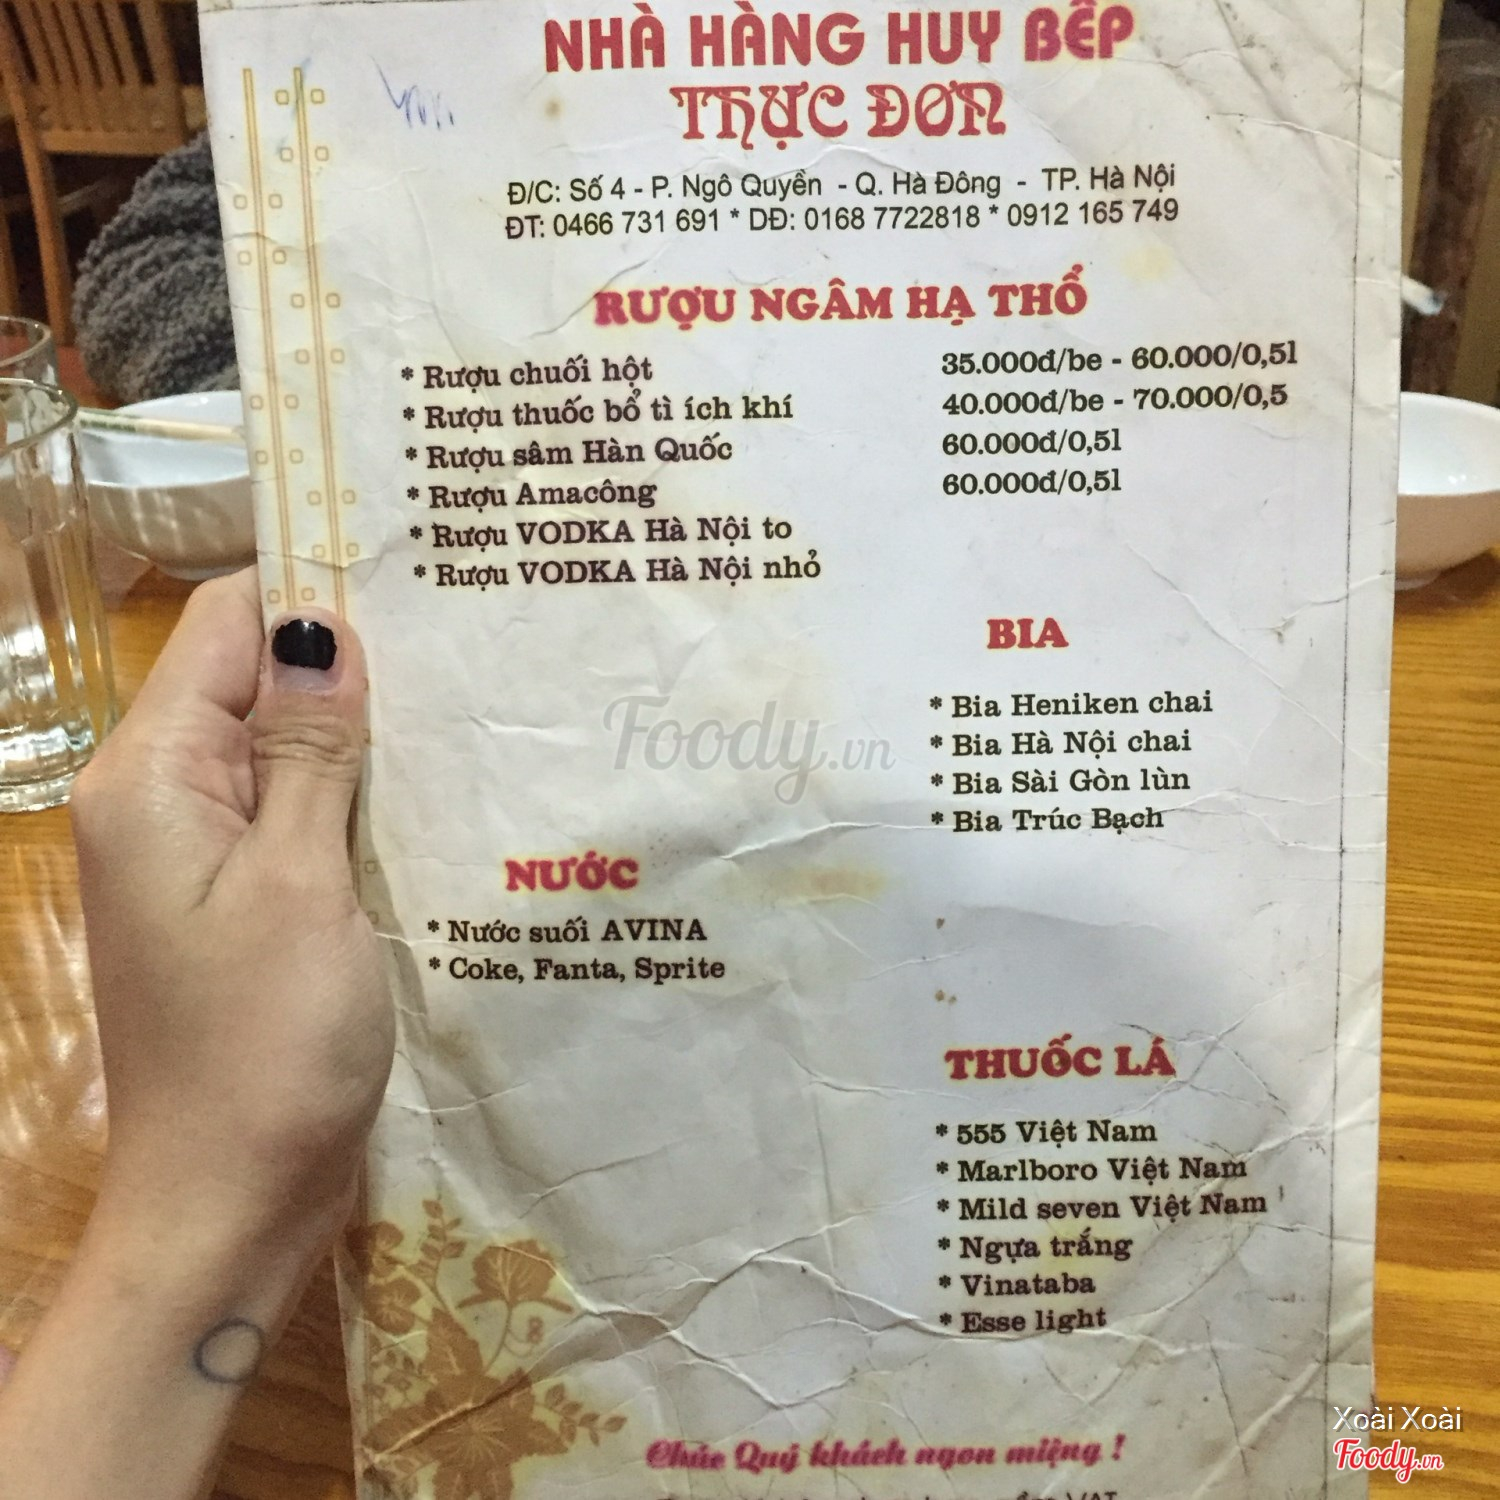 NHÀ HÀNG HUY BẾP
THỰC ĐƠN
Đ/C: Số 4 - P. Ngô Quyền - Q. Hà Đông - TP. Hà Nội
ĐT: 0466 731 691 * DĐ: 0168 7722818 * 0912 165 749
RƯỢU NGÂM HẠ THỔ
* Rượu chuối hột 35.000đ/be - 60.000/0,5l
* Rượu thuốc bổ tì ích khí 40.000đ/be - 70.000/0,5
* Rượu sâm Hàn Quốc 60.000đ/0,5l
* Rượu Amacông 60.000đ/0,5l
* Rượu VODKA Hà Nội to
* Rượu VODKA Hà Nội nhỏ
BIA
* Bia Heniken chai
* Bia Hà Nội chai
* Bia Sài Gòn lùn
* Bia Trúc Bạch
Foody.vn
NƯỚC
* Nước suối AVINA
* Coke, Fanta, Sprite
THUỐC LÁ
* 555 Việt Nam
* Marlboro Việt Nam
* Mild seven Việt Nam
* Ngựa trắng
* Vinataba
* Esse light
Chúc Quý khách ngon miệng !
VAT
Xoài Xoài
Foody.vn